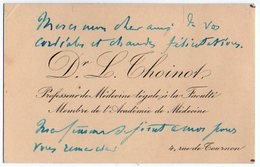 Merci mon cher ami de vos
cordiales et chaudes félicitations.
Dr L. Thoinot
Professeur de Médecine légale à la Faculté
Membre de l'Académie de Médecine
se joint à moi pour
vous remercier
4, rue de Tournon